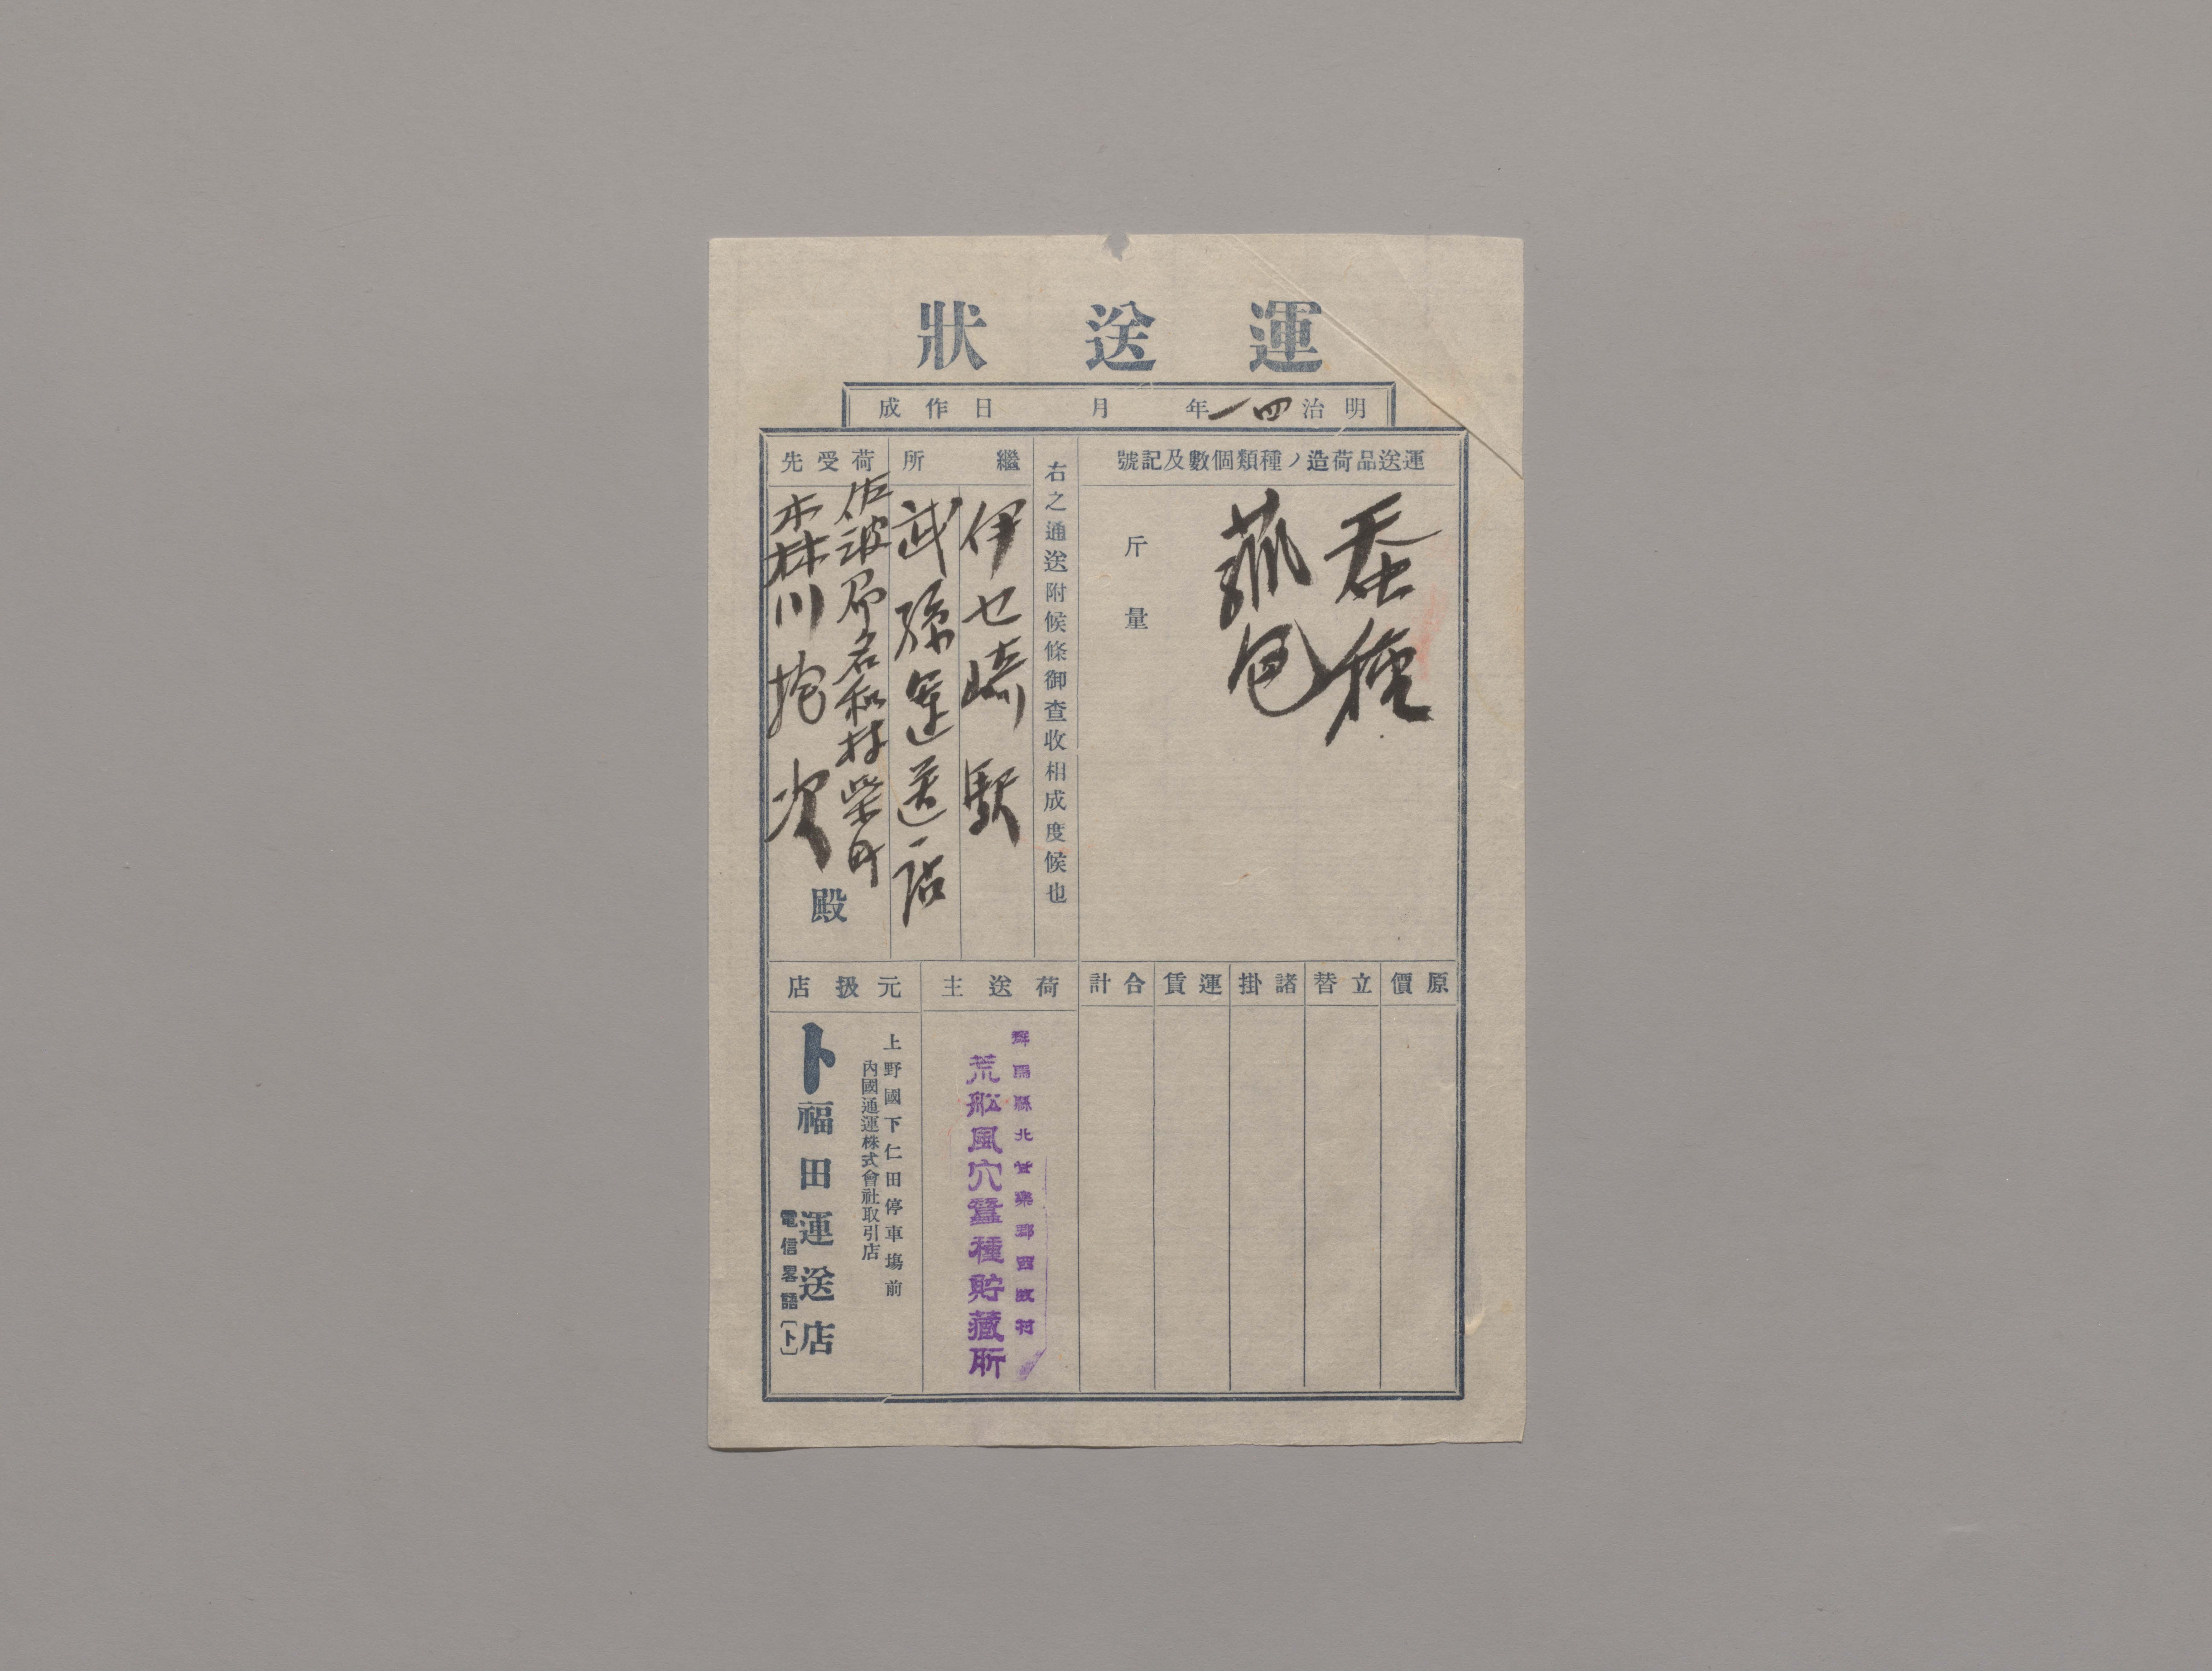 運送狀
明治四一年 月 日作成
運送品荷造ノ種類個數及記號
蚕種
菰包
斤量
右之通送附候條御査收相成度候也
繼所
伊セ崎駅
武孫運送店
荷受先
佐波郡名和村柴町
森川 次
殿
原價
立替
諸掛
運賃
合計
荷送主
群馬縣北甘樂郡西牧村
荒船風穴蠶種貯藏所
元扱店
上野國下仁田停車塲前
內國通運株式會社取引店
卜福田運送店
電信畧語〔卜〕